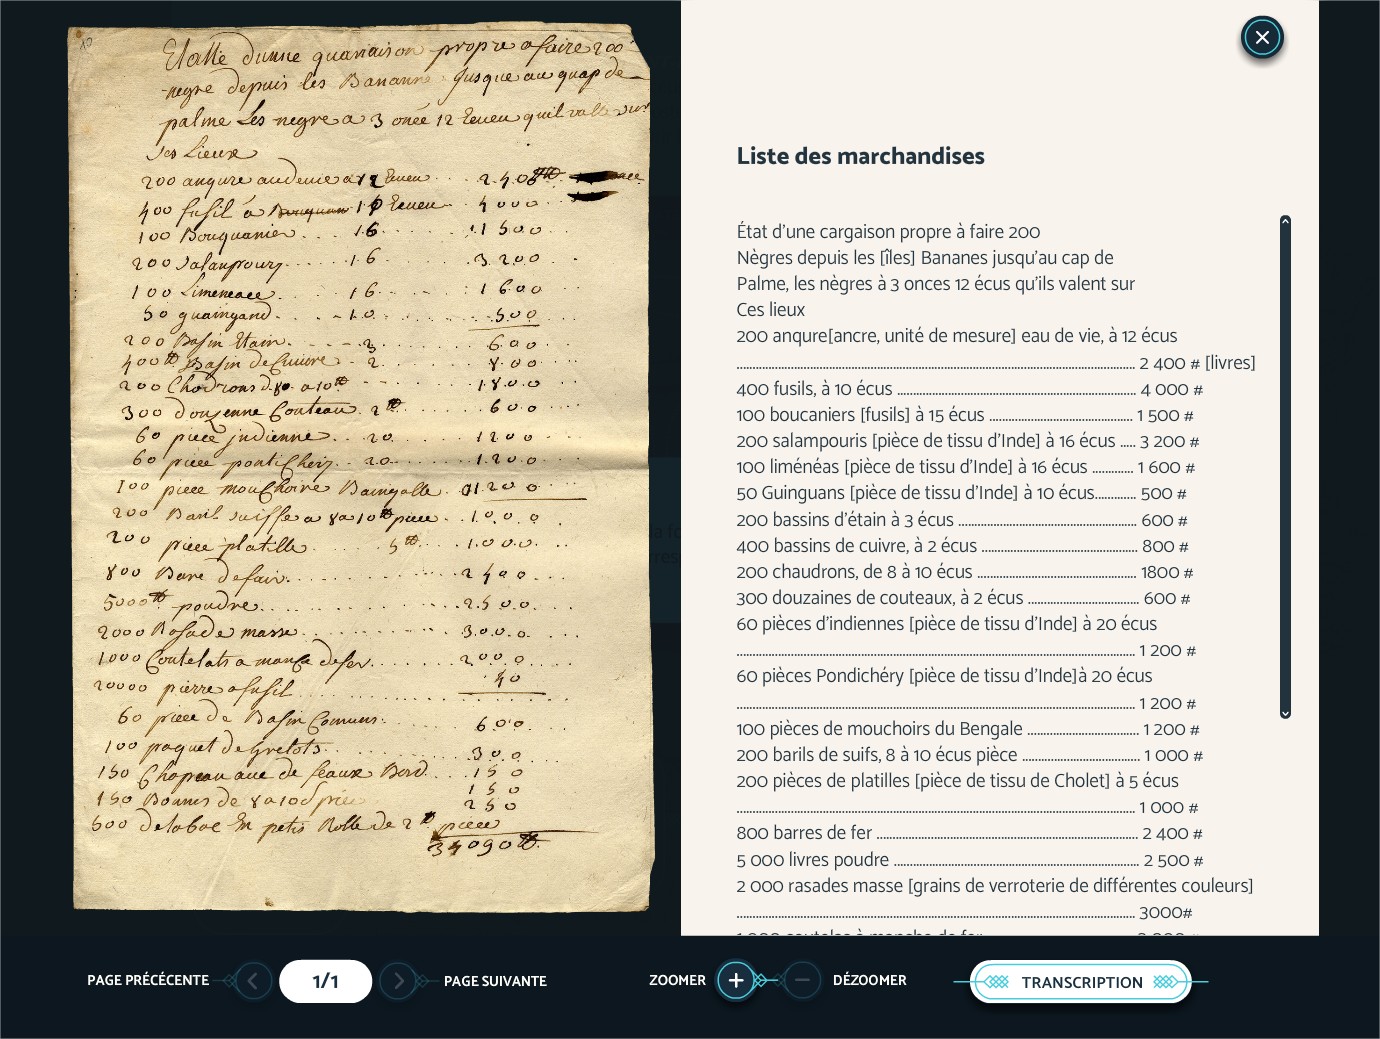 Etatte dunne quanaison propre a faire 200
negre depuis les Bananne Jusque au quap de
palme Les negre a 3 onée 12 Eeueu quil valle sur
Ses Lieux
200 anqure audeuie a 12 Eeueu . . . 2400
400 fusil a 10 Eeueu . . 4000
100 Bouquanier . . . . 16 . . . . 1500
200 Salanpoury . . . 16 . . . . 3200
100 Limeneace . . . . 16 . . . . 1600
50 guaingand . . . . 10 . . . . 500
200 Basin Etain . . . . 3 . . . . 600
400 Basin de Cuivre . . 2 . . . . 800
200 Chodrons d. 8 a 10 . . . . 1800
300 douzenne Couteau . 2 . . . . 600
60 piece jndienne . . . 20 . . . . 1200
60 piece pontichery . . 20 . . . . 1200
100 piece mouchoire Baingalle . . 1200
200 Baril suiffe a 8 a 10 piece . . 1000
200 piece platille . . . . 5 . . . . 1000
800 Bare defair . . . . 2400
5000 poudre . . . . 2500
2000 Rasade masse . . . . 3000
1000 Coutelats a manche defer . . . . 2000
20000 pierre a fusil . . . . 40
60 piece de Basin Comuns . . . . 600
100 paquet de Grelots . . . . 300
150 Chapeau de Bord . . . 150
150 Bonnes de 8 a 10 piece 150
250
500 detabac En petis Rolle de 2 piece
34090
Liste des marchandises
État d'une cargaison propre à faire 200
Nègres depuis les [îles] Bananes jusqu'au cap de
Palme, les nègres à 3 onces 12 écus qu'ils valent sur
Ces lieux
200 anqure[ancre, unité de mesure] eau de vie, à 12 écus
........ 2 400 # [livres]
400 fusils, à 10 écus ........ 4 000 #
100 boucaniers [fusils] à 15 écus ........ 1 500 #
200 salampouris [pièce de tissu d'Inde] à 16 écus ..... 3 200 #
100 liménéas [pièce de tissu d'Inde] à 16 écus ........ 1 600 #
50 Guinguans [pièce de tissu d'Inde] à 10 écus........ 500 #
200 bassins d'étain à 3 écus ........ 600 #
400 bassins de cuivre, à 2 écus ........ 800 #
200 chaudrons, de 8 à 10 écus ........ 1800 #
300 douzaines de couteaux, à 2 écus ........ 600 #
60 pièces d'indiennes [pièce de tissu d'Inde] à 20 écus
........ 1 200 #
60 pièces Pondichéry [pièce de tissu d'Inde]à 20 écus
........ 1 200 #
100 pièces de mouchoirs du Bengale ........ 1 200 #
200 barils de suifs, 8 à 10 écus pièce ........ 1 000 #
200 pièces de platilles [pièce de tissu de Cholet] à 5 écus
........ 1 000 #
800 barres de fer ........ 2 400 #
5 000 livres poudre ........ 2 500 #
2 000 rasades masse [grains de verroterie de différentes couleurs]
........ 3000#
PAGE PRÉCÉCENTE
1/1
PAGE SUIVANTE
ZOOMER
DÉZOOMER
TRANSCRIPTION